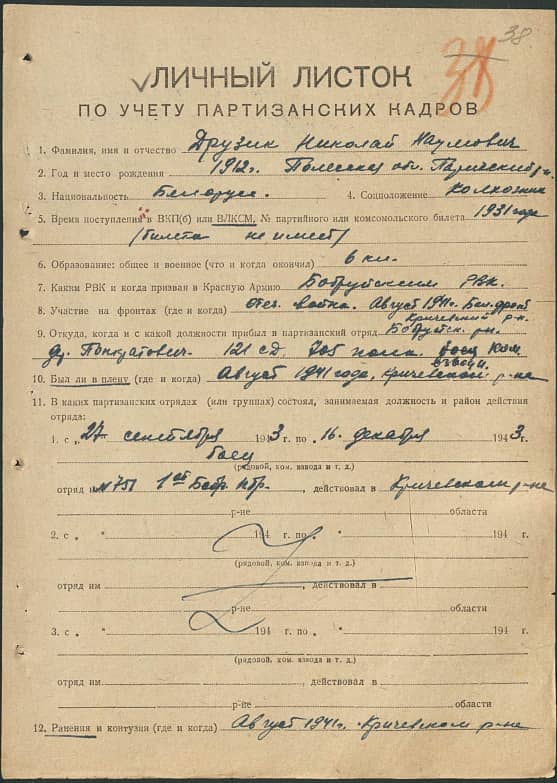 38
38
ЛИЧНЫЙ ЛИСТОК
ПО УЧЕТУ ПАРТИЗАНСКИХ КАДРОВ
1. Фамилия, имя и отчество Друзик Николай Наумович
2. Год и место рождения 1912г. Полесская обл. Паричский р-н.
3. Национальность Белорус. 4. Соцположение колхозник
5. Время поступления в ВКП(б) или ВЛКСМ, № партийного или комсомольского билета 1931 года
(билета не имеет)
6. Образование: общее и военное (что и когда окончил) 6 кл.
7. Каким РВК и когда призван в Красную Армию Бобруйским РВК.
8. Участие на фронтах (где и когда) Отеч. война. Август 1941г. Бел. фронт
Кричевский р-н.
9. Откуда, когда и с какой должности прибыл в партизанский отряд р-на.
д. 121 сд, 705 полк. боец ком.
10. Был ли в плену (где и когда) Август 1941 года, Кричевском р-не
11. В каких партизанских отрядах (или группах) состоял, занимаемая должность и район действия
отряда:
1. с „27 сентября 1943 г. по „16. декабря 1943 г.
боец
(рядовой, ком. взвода и т. д.)
отряд №751 1ой Бобр. п/бр., действовал в Кричевском р-не
р-не области
2. с „ " 194 г. по „ " 194 г.
(рядовой, ком. взвода и т. д.)
отряд им , действовал в
р-не области
3. с „ " 194 г. по „ " 194 г.
(рядовой, ком. взвода и т. д.)
отряд им. , действовал в
р-не области
12. Ранения и контузии (где и когда) Август 1941г. Кричевском р-не